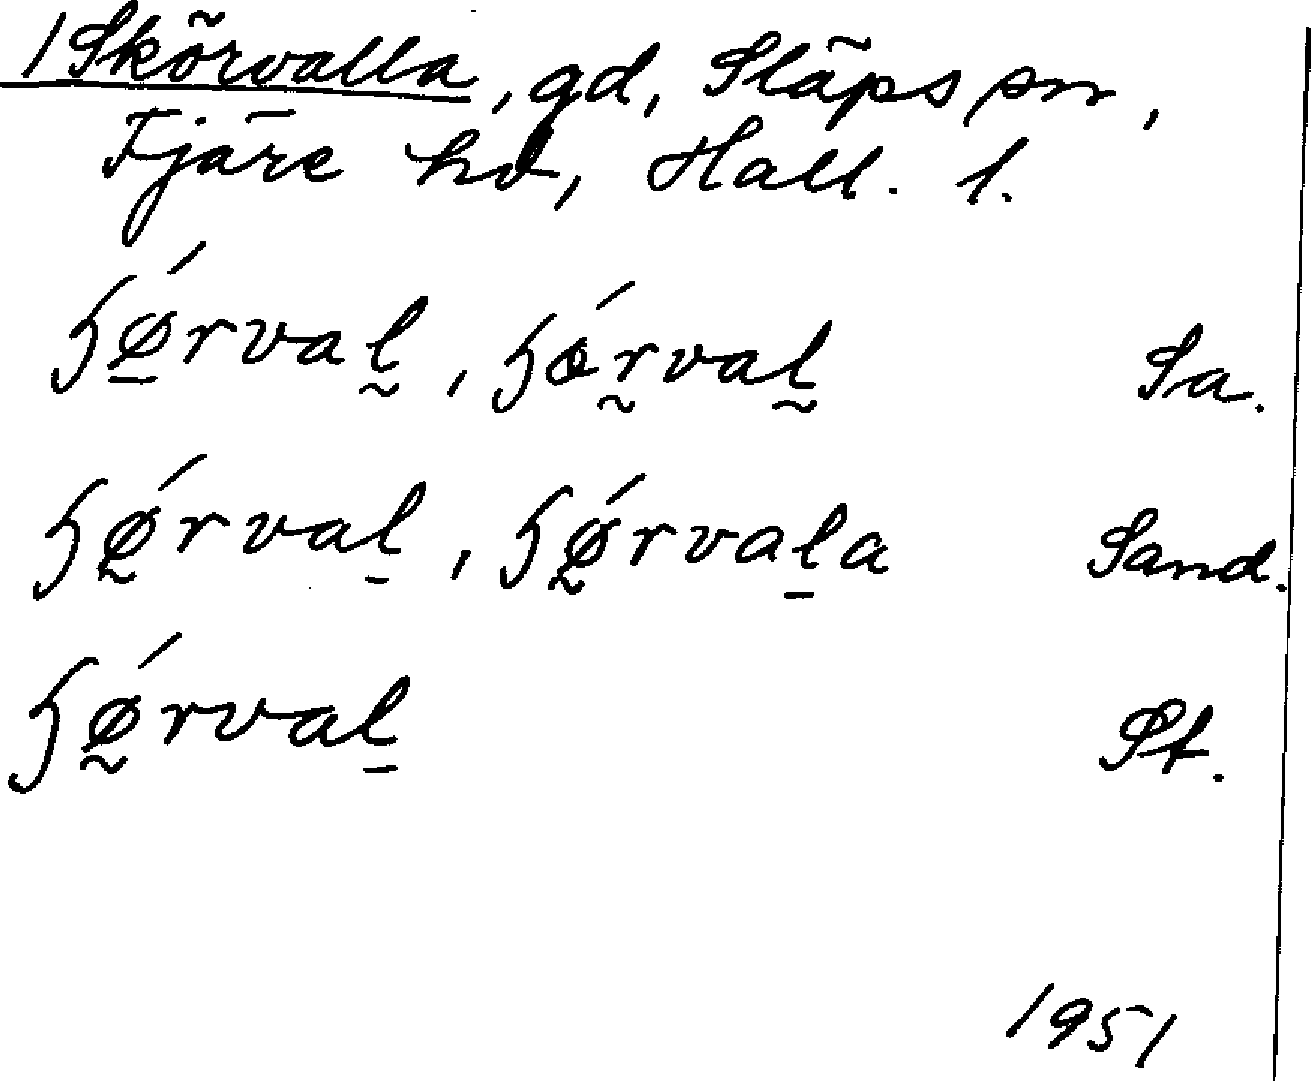 /Skörvalla, gd, Släps sn,
Fjäre hd, Hall. l.
ɧǿ̱rval̰, ɧǿr̰val̰ Sa.
ɧǿ̰rvaḻ, ɧǿ̰rvaḻa Sand.
ɧǿ̰rvaḻ St.
1951